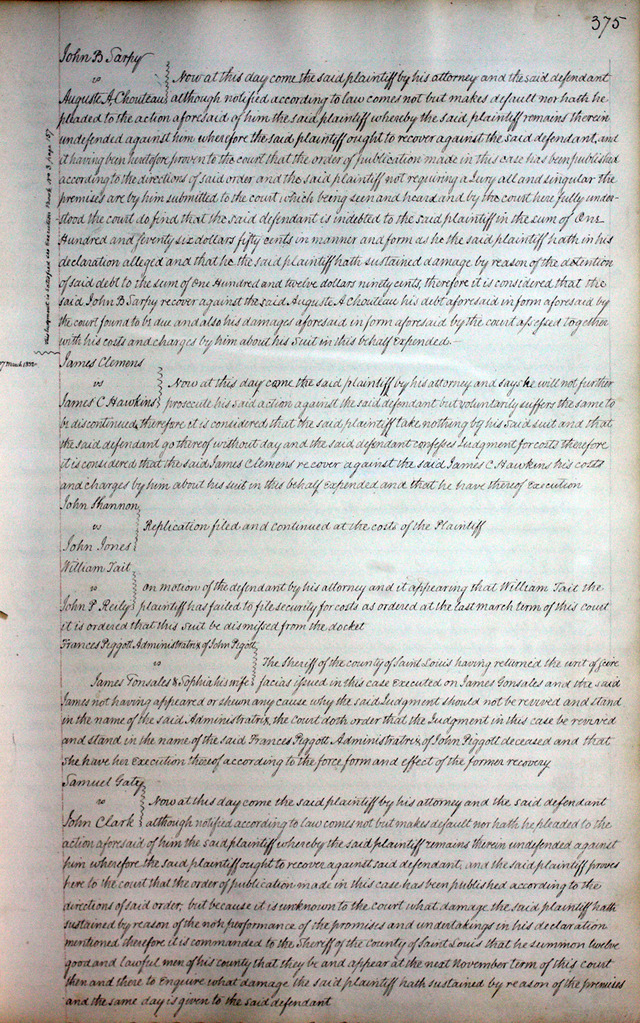 375
John B Sarpy
vs
Now at this day come the said plaintiff by his attorney and the said defendant
Auguste A Chouteau although notified according to law comes not but makes default nor hath he
pleaded to the action aforesaid of him the said plaintiff whereby the said plaintiff remains therein
undefended against him wherefore the said plaintiff ought to recover against the said defendant, and
it having been heretofore proven to the court that the order of publication made in this case has been published
according to the directions of said order and the said plaintiff not requiring a Jury all and singular the
premises are by him submitted to the court which being seen and heard and by the court here fully under-
stood the court do find that the said defendant is indebted to the said plaintiff in the sum of One
Hundred and seventy six dollars fifty cents in manner and form as he the said plaintiff hath in his
declaration alleged and that he the said plaintiff hath sustained damage by reason of the detention
of said debt to the sum of One Hundred and twelve dollars ninety cents, therefore it is considered that the
said John B Sarpy recover against the said Auguste A Chouteau his debt aforesaid in form aforesaid by
the court found to be due and also his damages aforesaid in form aforesaid by the court assessed together
with his costs and charges by him about his suit in this behalf Expended.—
This Judgment is satisfied see Execution Book No 3 page 157
7 March 1832
James Clemens
vs
Now at this day come the said plaintiff by his attorney and says he will not further
James C Hawkins prosecute his said action against the said defendant but voluntarily suffers the same to
be discontinued, therefore it is considered that the said plaintiff take nothing by his said suit and that
the said defendant go thereof without day and the said defendant confesses Judgment for costs therefore
it is considered that the said James Clemens recover against the said James C Hawkins his costs
and charges by him about his suit in this behalf Expended and that he have thereof Execution
John Shannon
vs
Replication filed and continued at the costs of the Plaintiff
John Jones
William Tait
vs
on motion of the defendant by his attorney and it appearing that William Tait the
John P Reily plaintiff has failed to file security for costs as ordered at the last march term of this court
it is ordered that this suit be dismissed from the docket
Frances Piggott Administratrix of John Pigott
vs
The Sheriff of the county of Saint Louis having returned the writ of scire
James Gonsales & Sophia his wife facias issued in this case Executed on James Gonsales and the said
James not having appeared or shewn any cause why the said Judgment should not be revived and stand
in the name of the said Administratrix, the court doth order that the Judgment in this case be revived
and stand in the name of the said Frances Piggott Administratrix of John Piggott deceased and that
she have her Execution thereof according to the force form and effect of the former recovery
Samuel Gaty
vs
Now at this day come the said plaintiff by his attorney and the said defendant
John Clark although notified according to law comes not but makes default nor hath he pleaded to the
action aforesaid of him the said plaintiff whereby the said plaintiff remains therein undefended against
him wherefore the said plaintiff ought to recover against said defendant, and the said plaintiff proves
here to the court that the order of publication made in this case has been published according to the
directions of said order, but because it is unknown to the court what damage the said plaintiff hath
sustained by reason of the non performance of the promises and undertakings in his declaration
mentioned therefore it is commanded to the Sheriff of the County of Saint Louis that he summon twelve
good and lawful men of his county that they be and appear at the next November term of this court
then and there to Enquire what damage the said plaintiff hath sustained by reason of the premises
and the same day is given to the said defendant